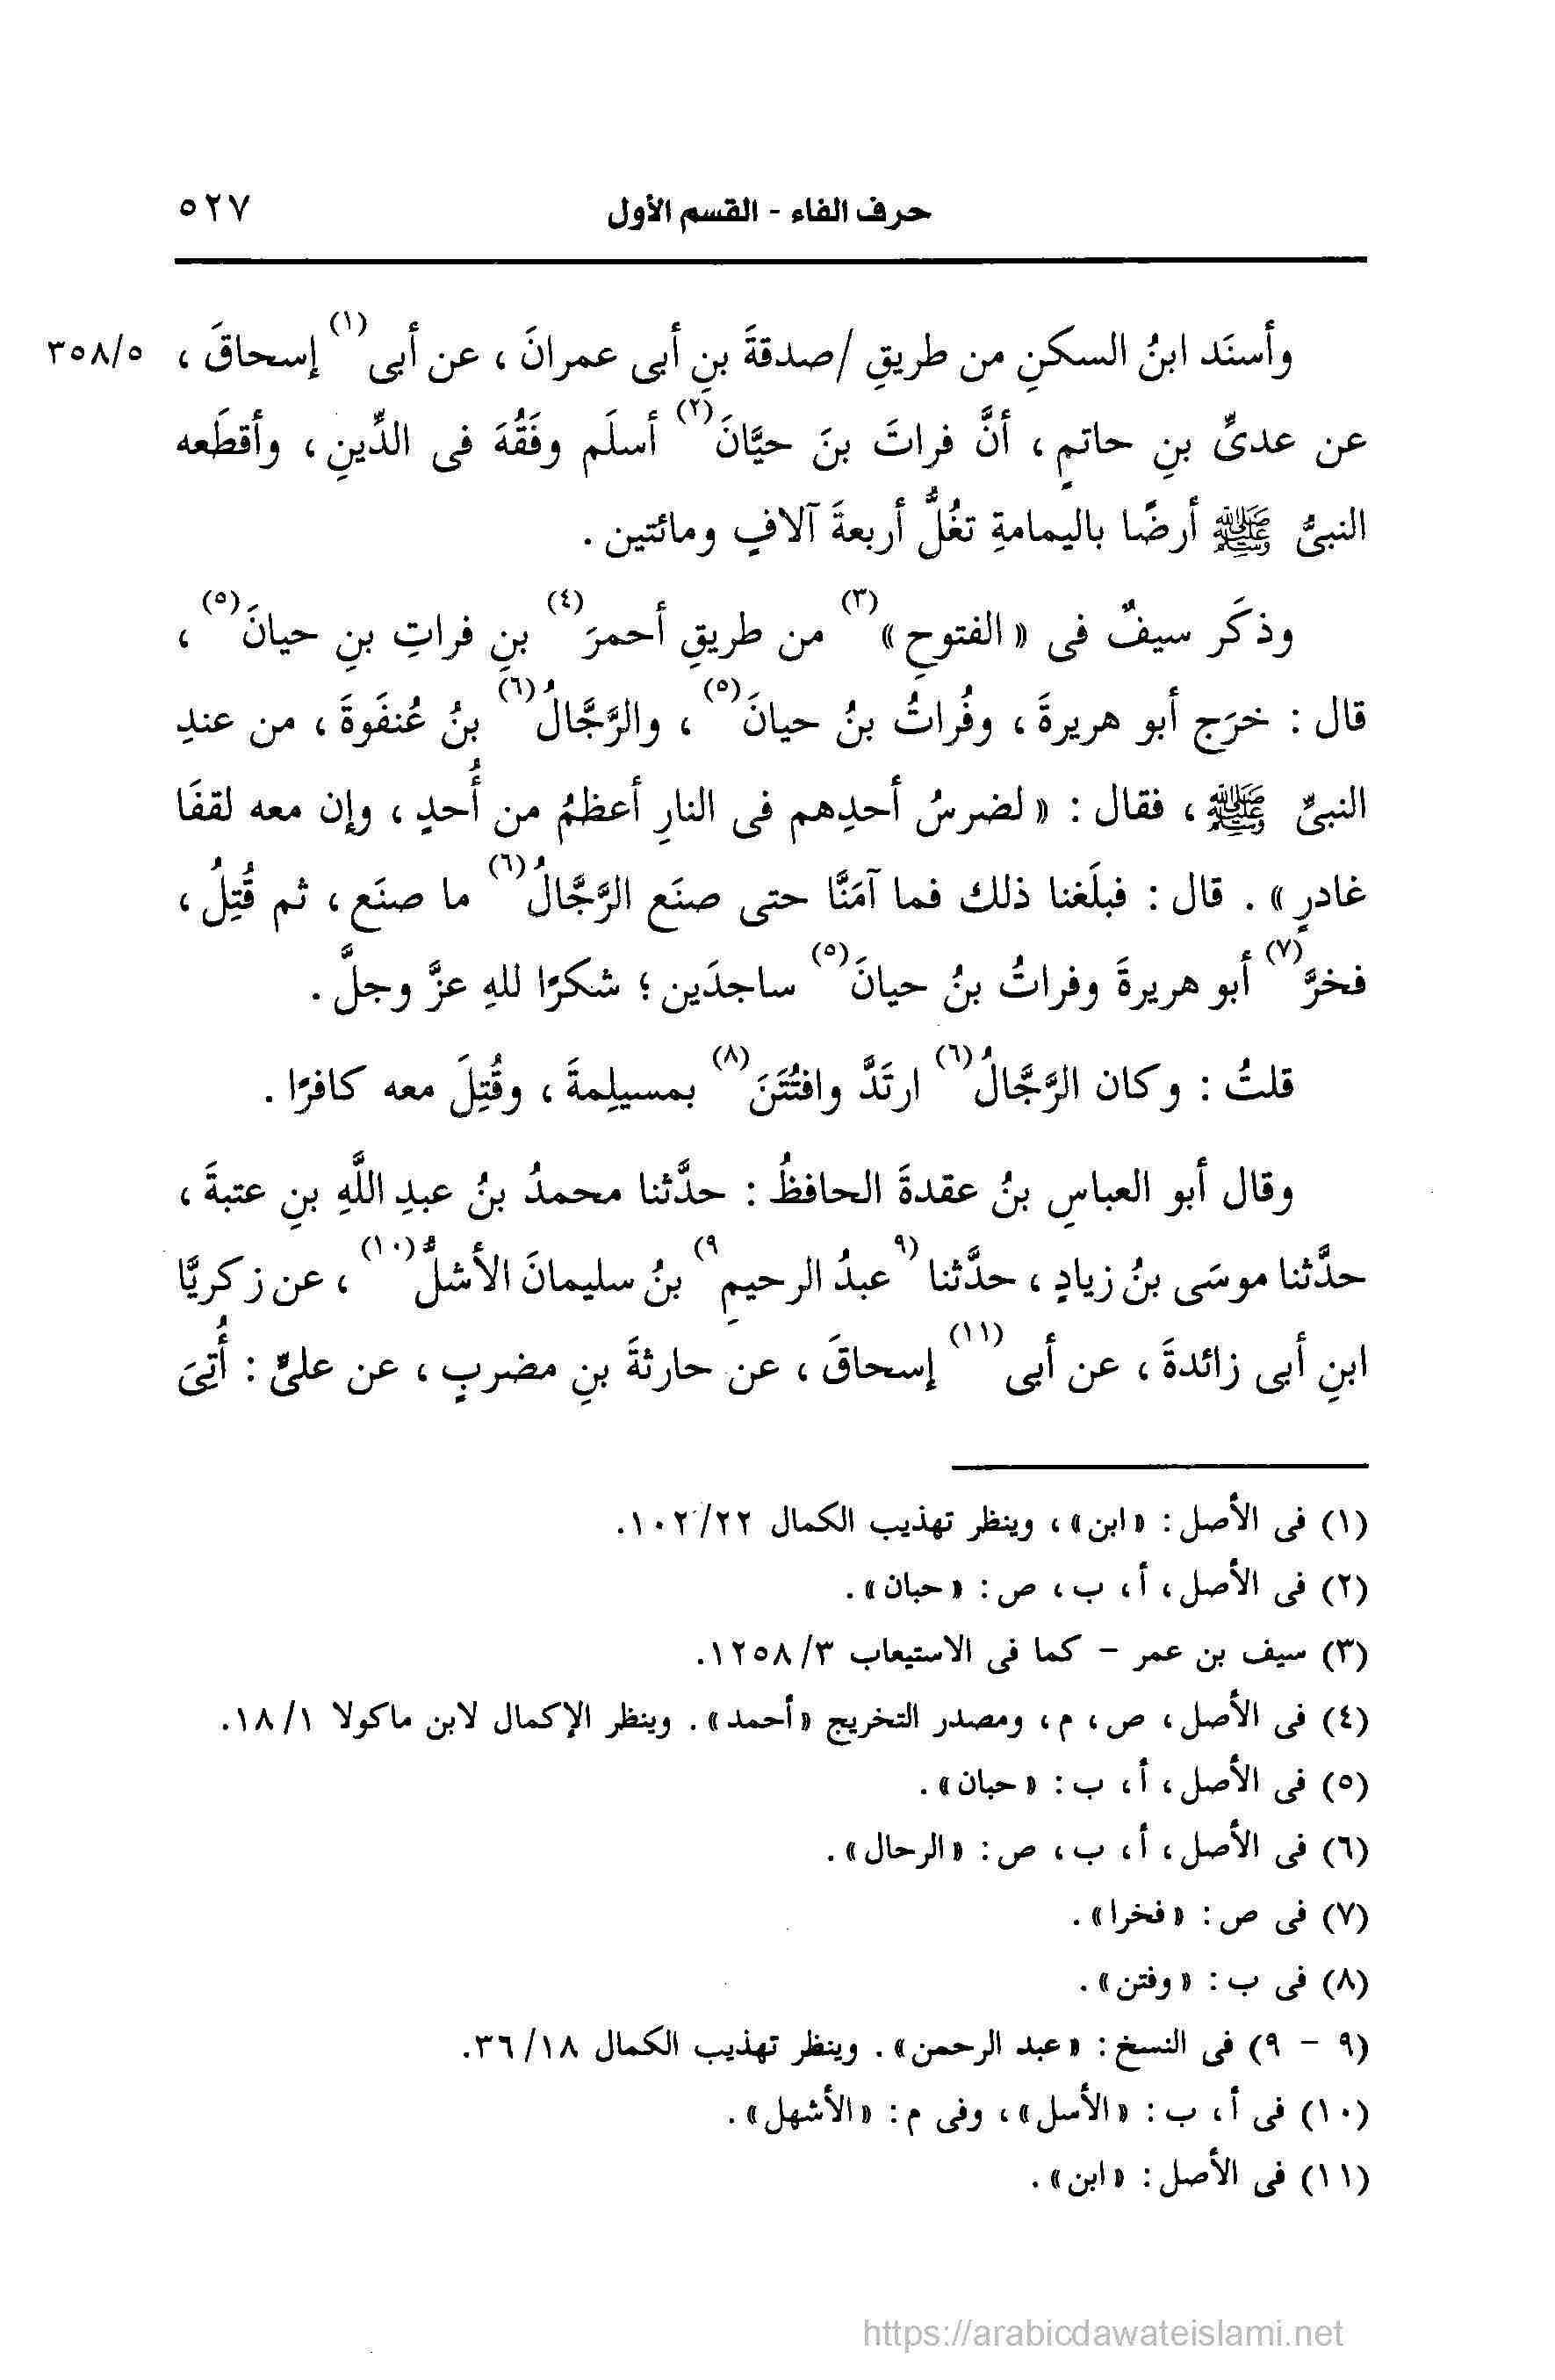 حرف الفاء - القسم الأول ٥٢٧
وأسنَد ابنُ السكنِ من طريقِ /صدقةَ بنِ أبى عمرانَ ، عن أبى(١) إسحاقَ ، ٣٥٨/٥
عن عدىِّ بنِ حاتمٍ ، أنَّ فراتَ بنَ حيَّانَ(٢) أسلَم وفَقُهَ فى الدِّينِ ، وأقطَعه
النبىُّ ﷺ أرضًا باليمامةِ تغُلُّ أربعةَ آلافٍ ومائتين .
وذكَر سيفٌ فى « الفتوحِ »(٣) من طريقِ أحمرَ(٤) بنِ فراتِ بنِ حيانَ(٥) ،
قال : خرَج أبو هريرةَ ، وفُراتُ بنُ حيانَ(٥) ، والرَّجَّالُ(٦) بنُ عُنفَوةَ ، من عندِ
النبىِّ ﷺ ، فقال : « لضرسُ أحدِهم فى النارِ أعظمُ من أُحدٍ ، وإن معه لقفَا
غادرٍ » . قال : فبلَغنا ذلك فما آمَنَّا حتى صنَع الرَّجَّالُ(٦) ما صنَع ، ثم قُتِلُ ،
فخرَّ(٧) أبو هريرةَ وفراتُ بنُ حيانَ(٥) ساجدَين ؛ شكرًا للهِ عزَّ وجلَّ .
قلتُ : وكان الرَّجَّالُ(٦) ارتَدَّ وافتُتَنَ(٨) بمسيلِمةَ ، وقُتِلَ معه كافرًا .
وقال أبو العباسِ بنُ عقدةَ الحافظُ : حدَّثنا محمدُ بنُ عبدِ اللَّهِ بنِ عتبةَ ،
حدَّثنا موسَى بنُ زيادٍ ، حدَّثنا (٩عبدُ الرحيمِ٩) بنُ سليمانَ الأشلُّ(١٠) ، عن زكريَّا
ابنِ أبى زائدةَ ، عن أبى(١١) إسحاقَ ، عن حارثةَ بنِ مضربٍ ، عن علىٍّ : أُتِىَ
(١) فى الأصل : « ابن » ، وينظر تهذيب الكمال ١٠٢/٢٢.
(٢) فى الأصل ، أ ، ب ، ص : « حبان » .
(٣) سيف بن عمر - كما فى الاستيعاب ١٢٥٨/٣.
(٤) فى الأصل ، ص ، م ، ومصدر التخريج « أحمد » . وينظر الإكمال لابن ماكولا ١٨/١.
(٥) فى الأصل ، أ ، ب : « حبان » .
(٦) فى الأصل ، أ ، ب ، ص : « الرحال » .
(٧) فى ص : « فخرا » .
(٨) فى ب : « وفتن » .
(٩ - ٩) فى النسخ : « عبد الرحمن » . وينظر تهذيب الكمال ٣٦/١٨.
(١٠) فى أ ، ب : « الأسل » ، وفى م : « الأشهل » .
(١١) فى الأصل : « ابن » .
https://arabicdawateislami.net